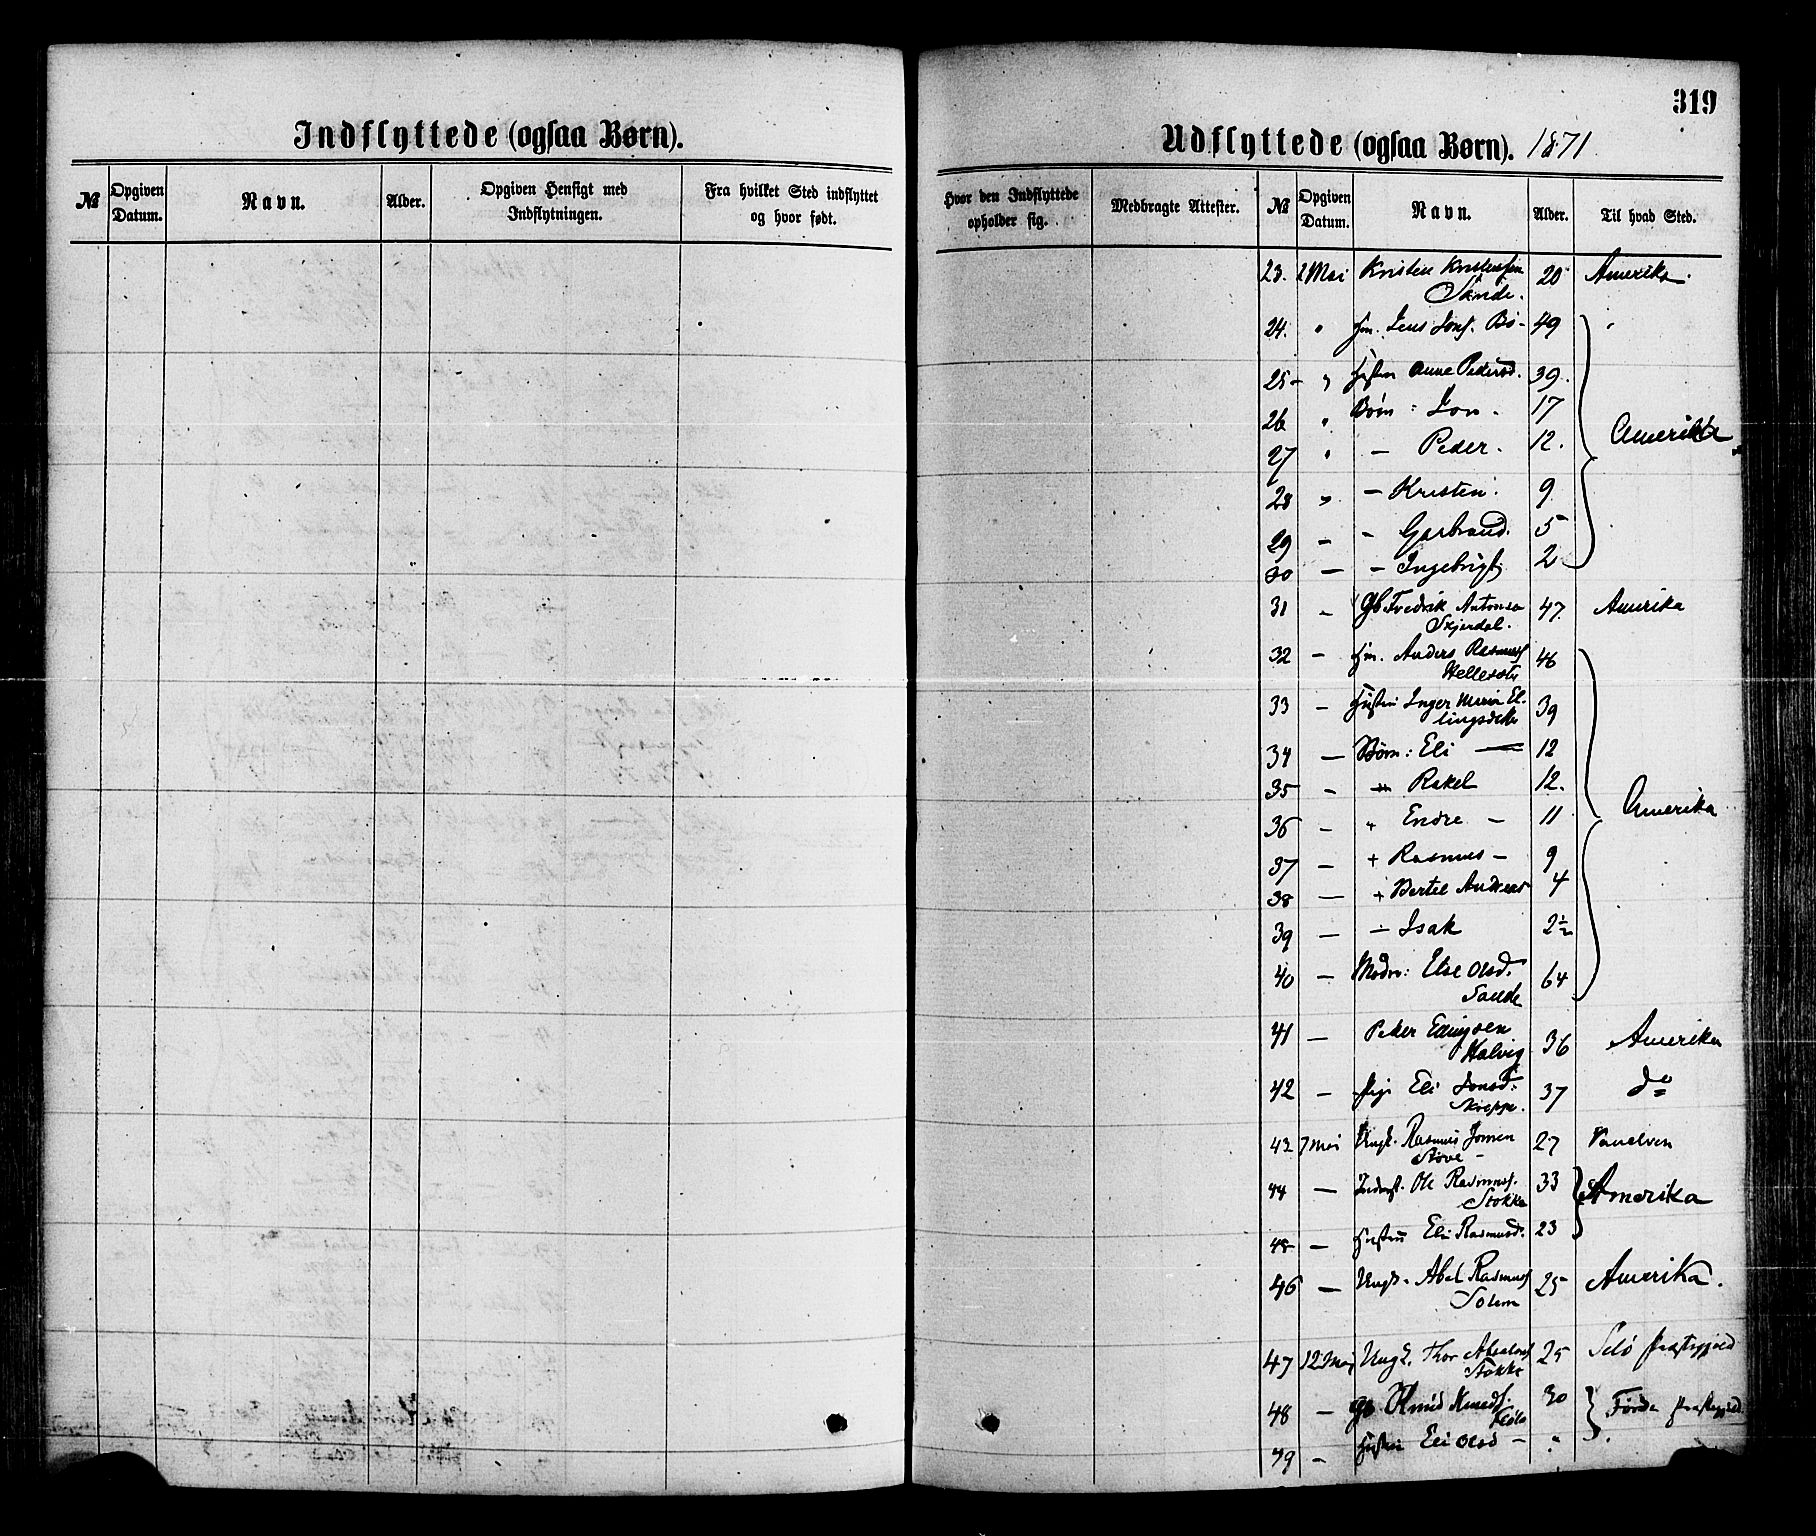 319
Indflyttede (ogsaa Børn).
Udflyttede (ogsaa Børn). 1871
№ Opgiven Datum. Navn. Alder. Opgiven Hensigt med Indflytningen. Fra hvilket Sted indflyttet og hvor født.
Hvor den Indflyttede opholder sig. Medbragte Attester. № Opgiven Datum. Navn. Alder. Til hvad Sted.
23. 2 Mai Kristen Kristensen 20 Amerika.
Sande.
24. " Hm. Jens Jons. Bø - 49 "
25 - " Hustru Anne Pedersd. 39.
26 " Børn: Jon - 17
Amerika
27 " - Peder. 12.
28 " - Kristen. 9
29 - - Garbrand. 5
30 - - Ingebrigt 2
31 - Gb Fredrik Antonsen 47. Amerika
Skjerdal.
32 - Hm. Anders Rasmuss 46
Hellesæte
33 - Hustru Inger Marie El- 39
lingsdtr
34 - Børn: Eli - 12
35 - " Rakel 12.
36 - " Endre - 11 Amerika
37 - + Rasmus - 9
38 - + Bertel Andreas 4
39 - - Isak 2½
40 - Modr: Else Olsd. 64
Sande
41 - Peder 36 Amerika
42 - Pige Eli Jonsd. 37 do
43 7 Mai Ungk. Rasmus 27 Vanelven
Støve -
44 - Inderst. Ole Rasmuss. 33 Amerika
Stokke
45 - Hustru Eli Rasmusd. 23
46 - Ungk. Abel Rasmuss 25 Amerika.
Solem
47 12 Maj Ungk. Thor 25 Selø Præstegjeld
Stokke
48 - Gb Knud Knuds. 30 Førde Præstegjeld
49 - Hustru Eli Olsd - " "